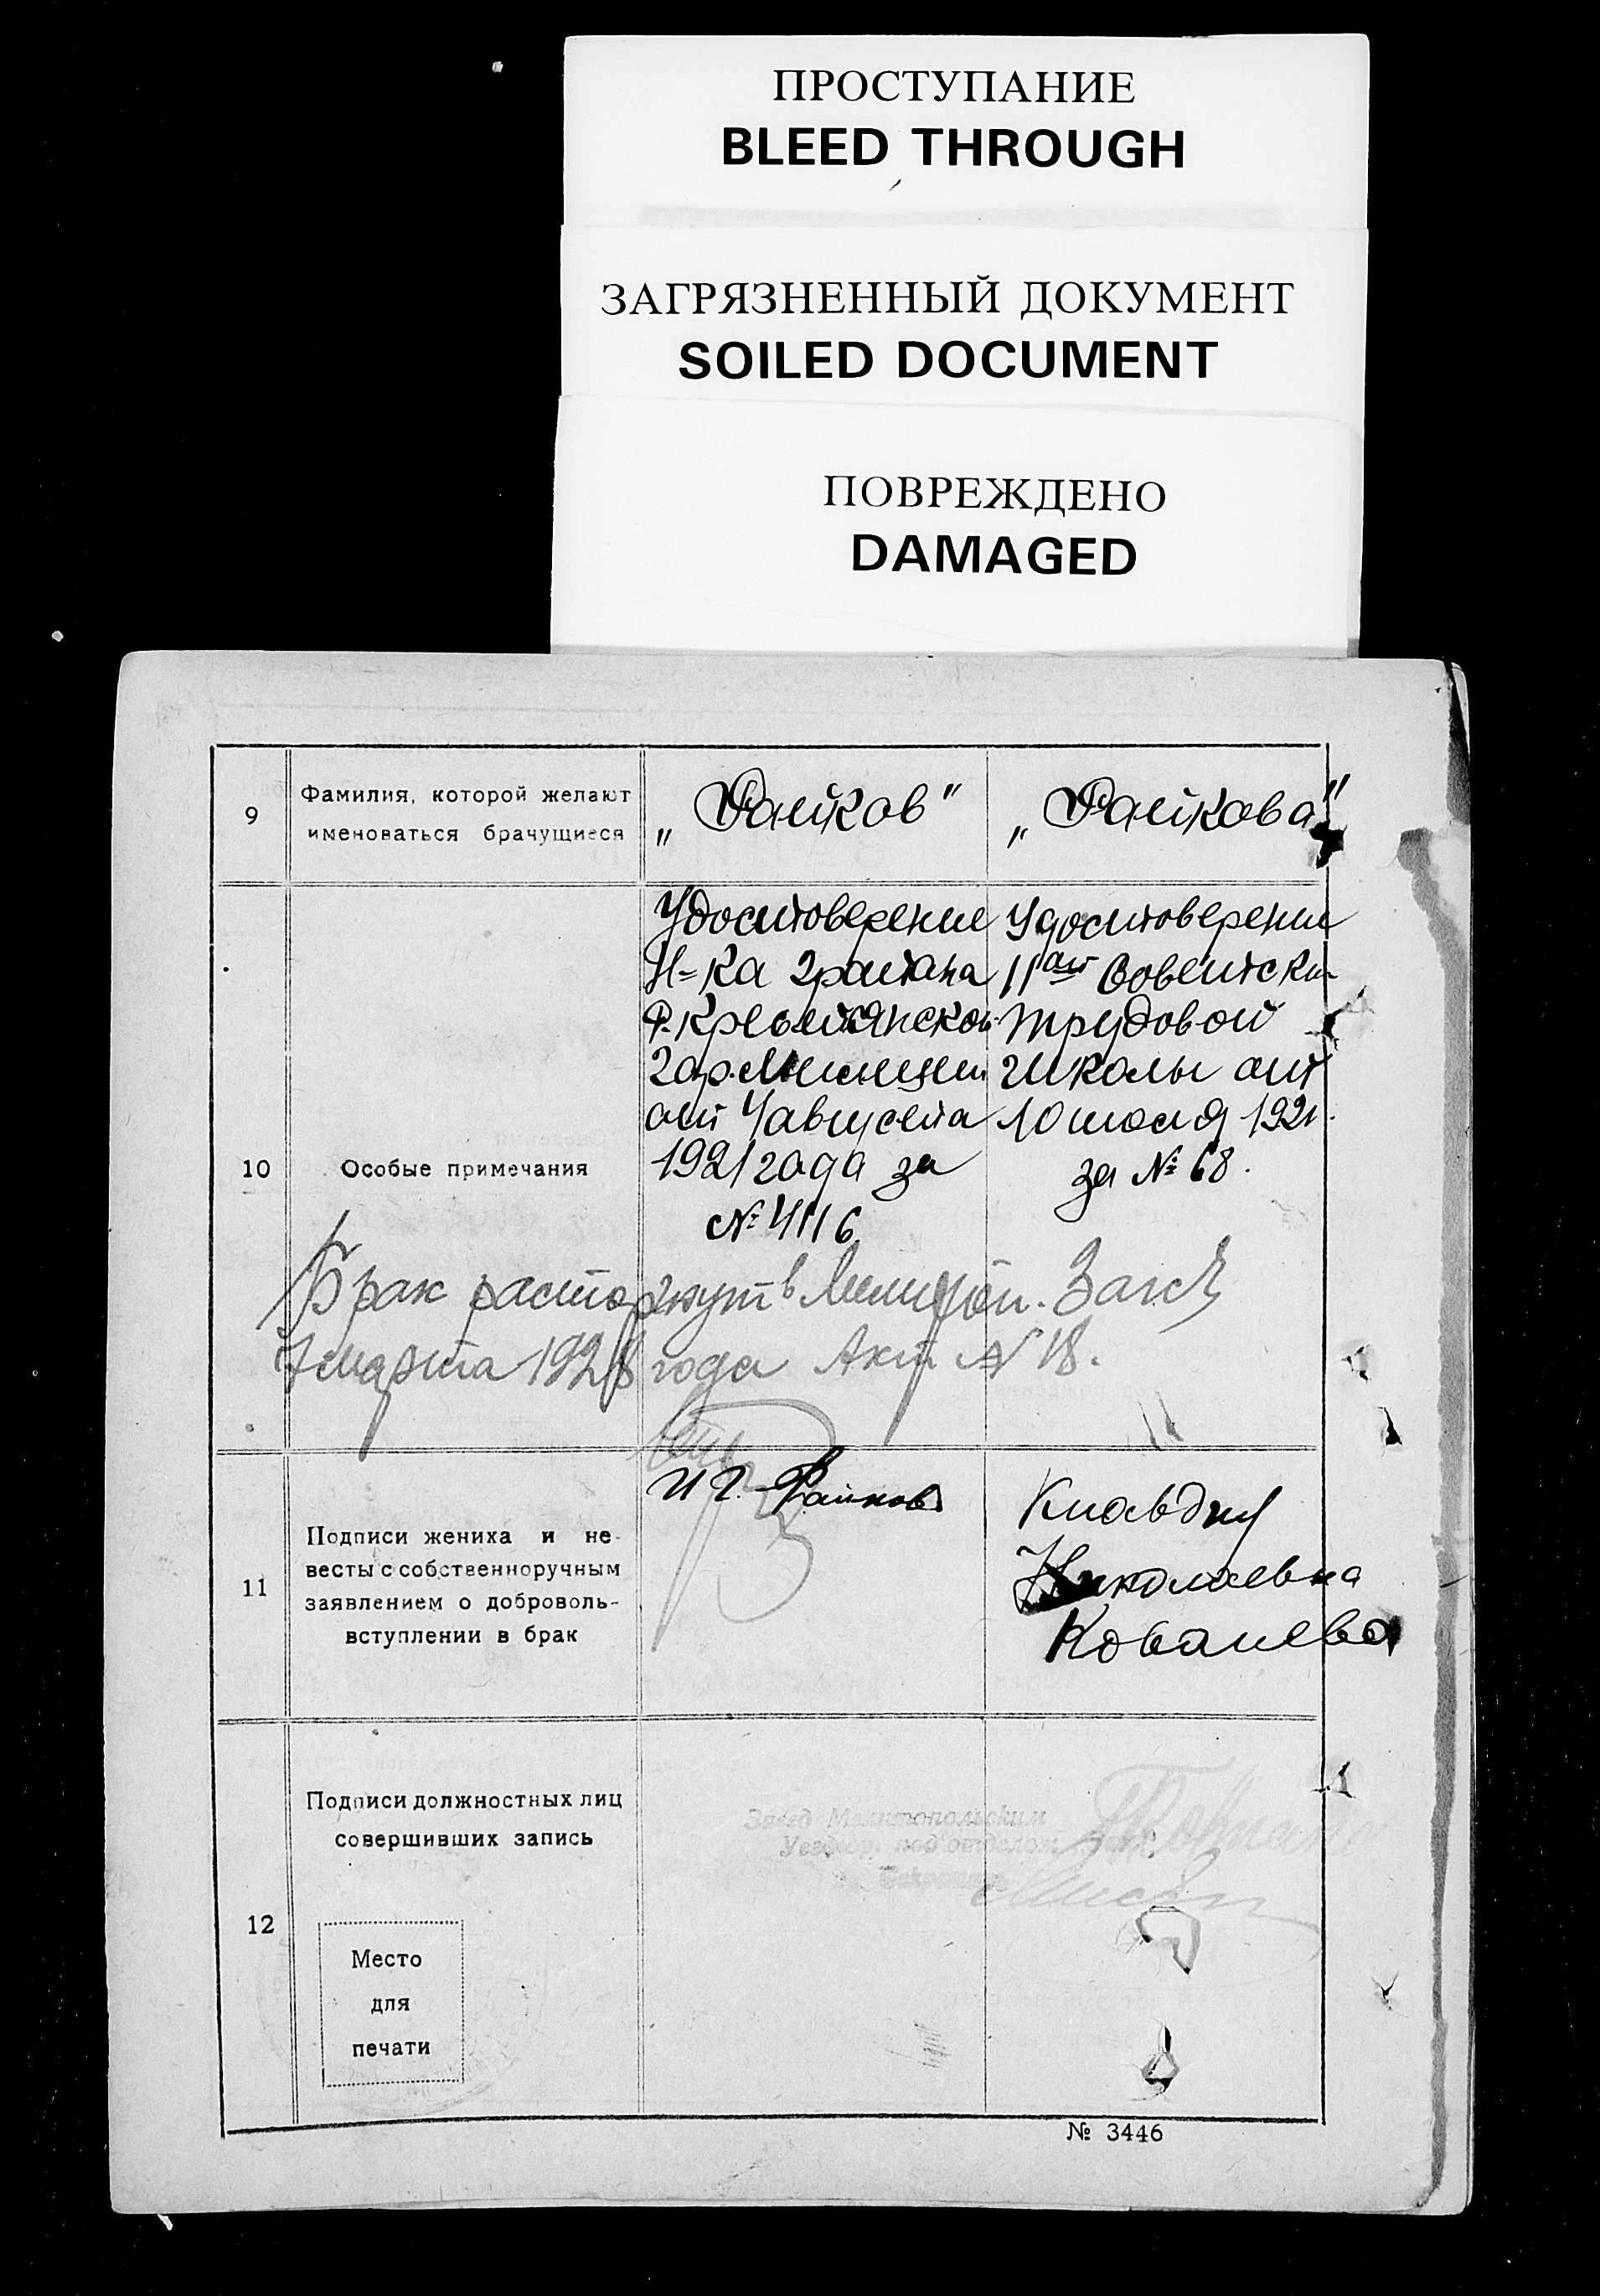 ПРОСТУПАНИЕ
BLEED THROUGH
ЗАГРЯЗНЕННЫЙ ДОКУМЕНТ
SOILED DOCUMENT
ПОВРЕЖДЕНО
DAMAGED
9
Фамилия, которой желают
именоваться брачущиеся
„Файков"
„Файкова"
10
Особые примечания
Удостоверение
Н=ка
Р.Крестьянской
Гор.Милиции
от 4 августа
1921 года за
№ 4116
Удостоверение
11ой Советской
трудовой
школы от
10 июля 1921.
за № 68.
Брак расторгнут в Мелитоп. Загсе
7 марта 1928 года Акт № 18.
11
Подписи жениха и не-
весты с собственноручным
заявлением о доброволь-
вступлении в брак
И Г. Файков
Клавдия
Николаевна
Ковалева
12
Подписи должностных лиц
совершивших запись
Завед Мелитопольским
Место
для
печати
№ 3446